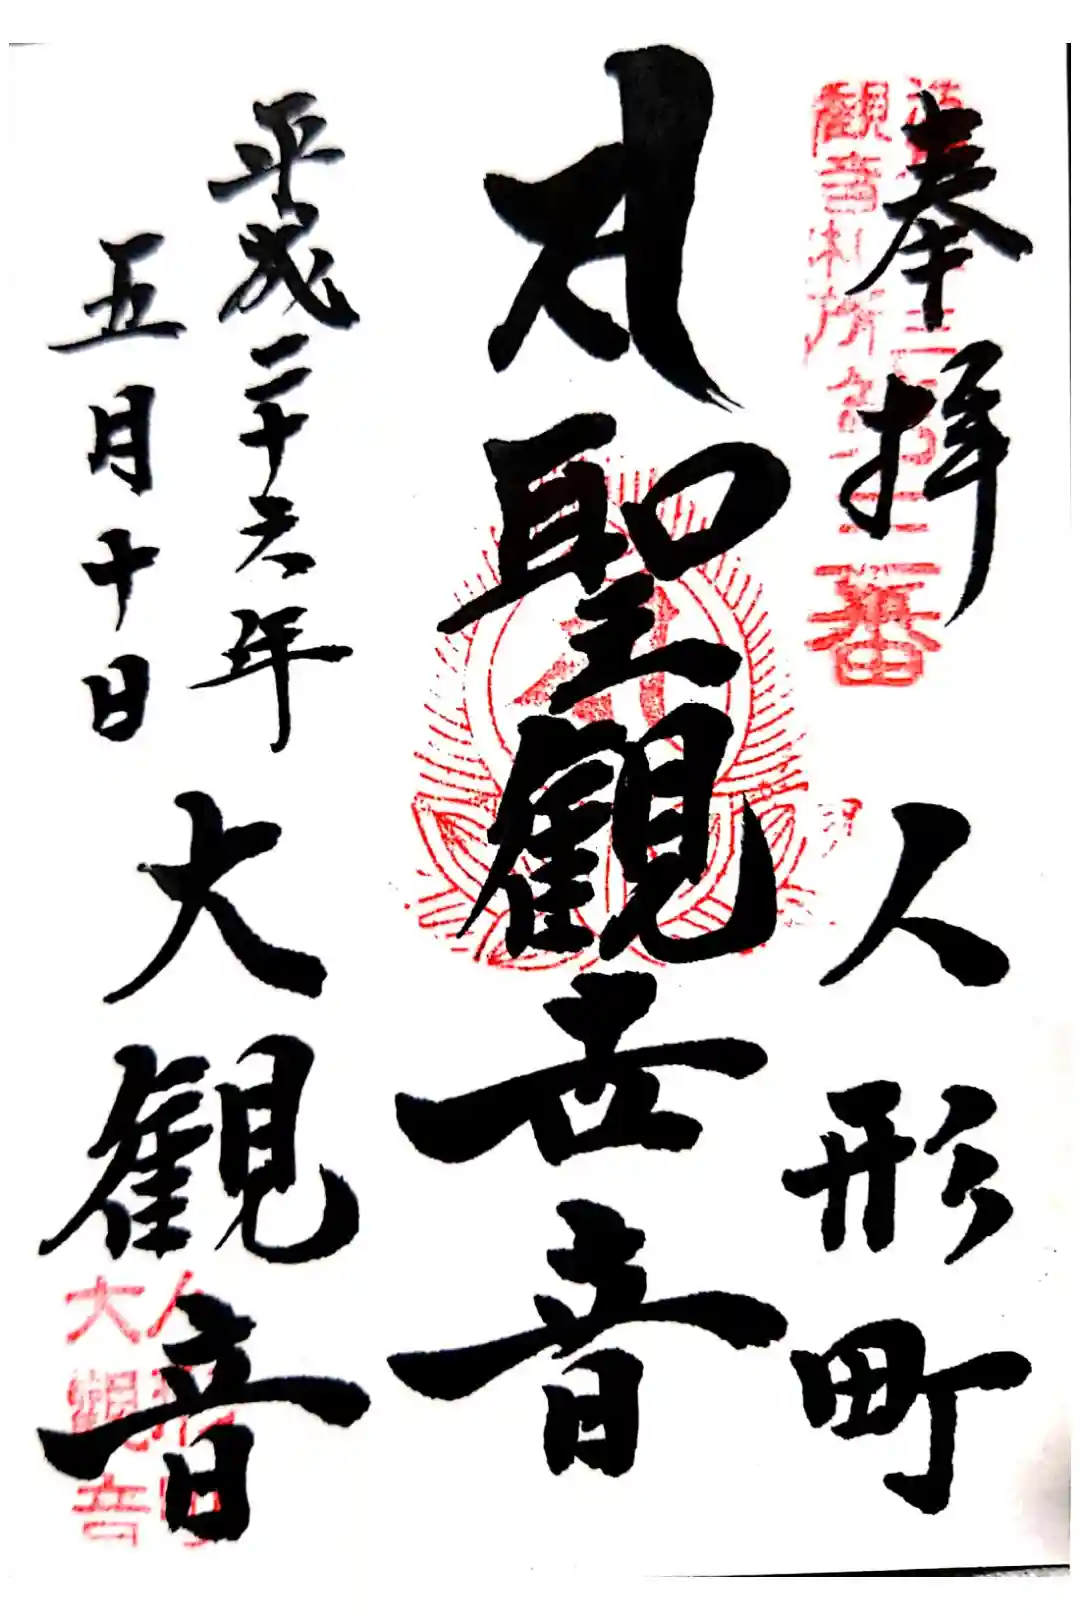 奉拝 人形町
觀音札所
番
聖観世音
平成二十六年
五月十日
大観音
人形町
大觀音